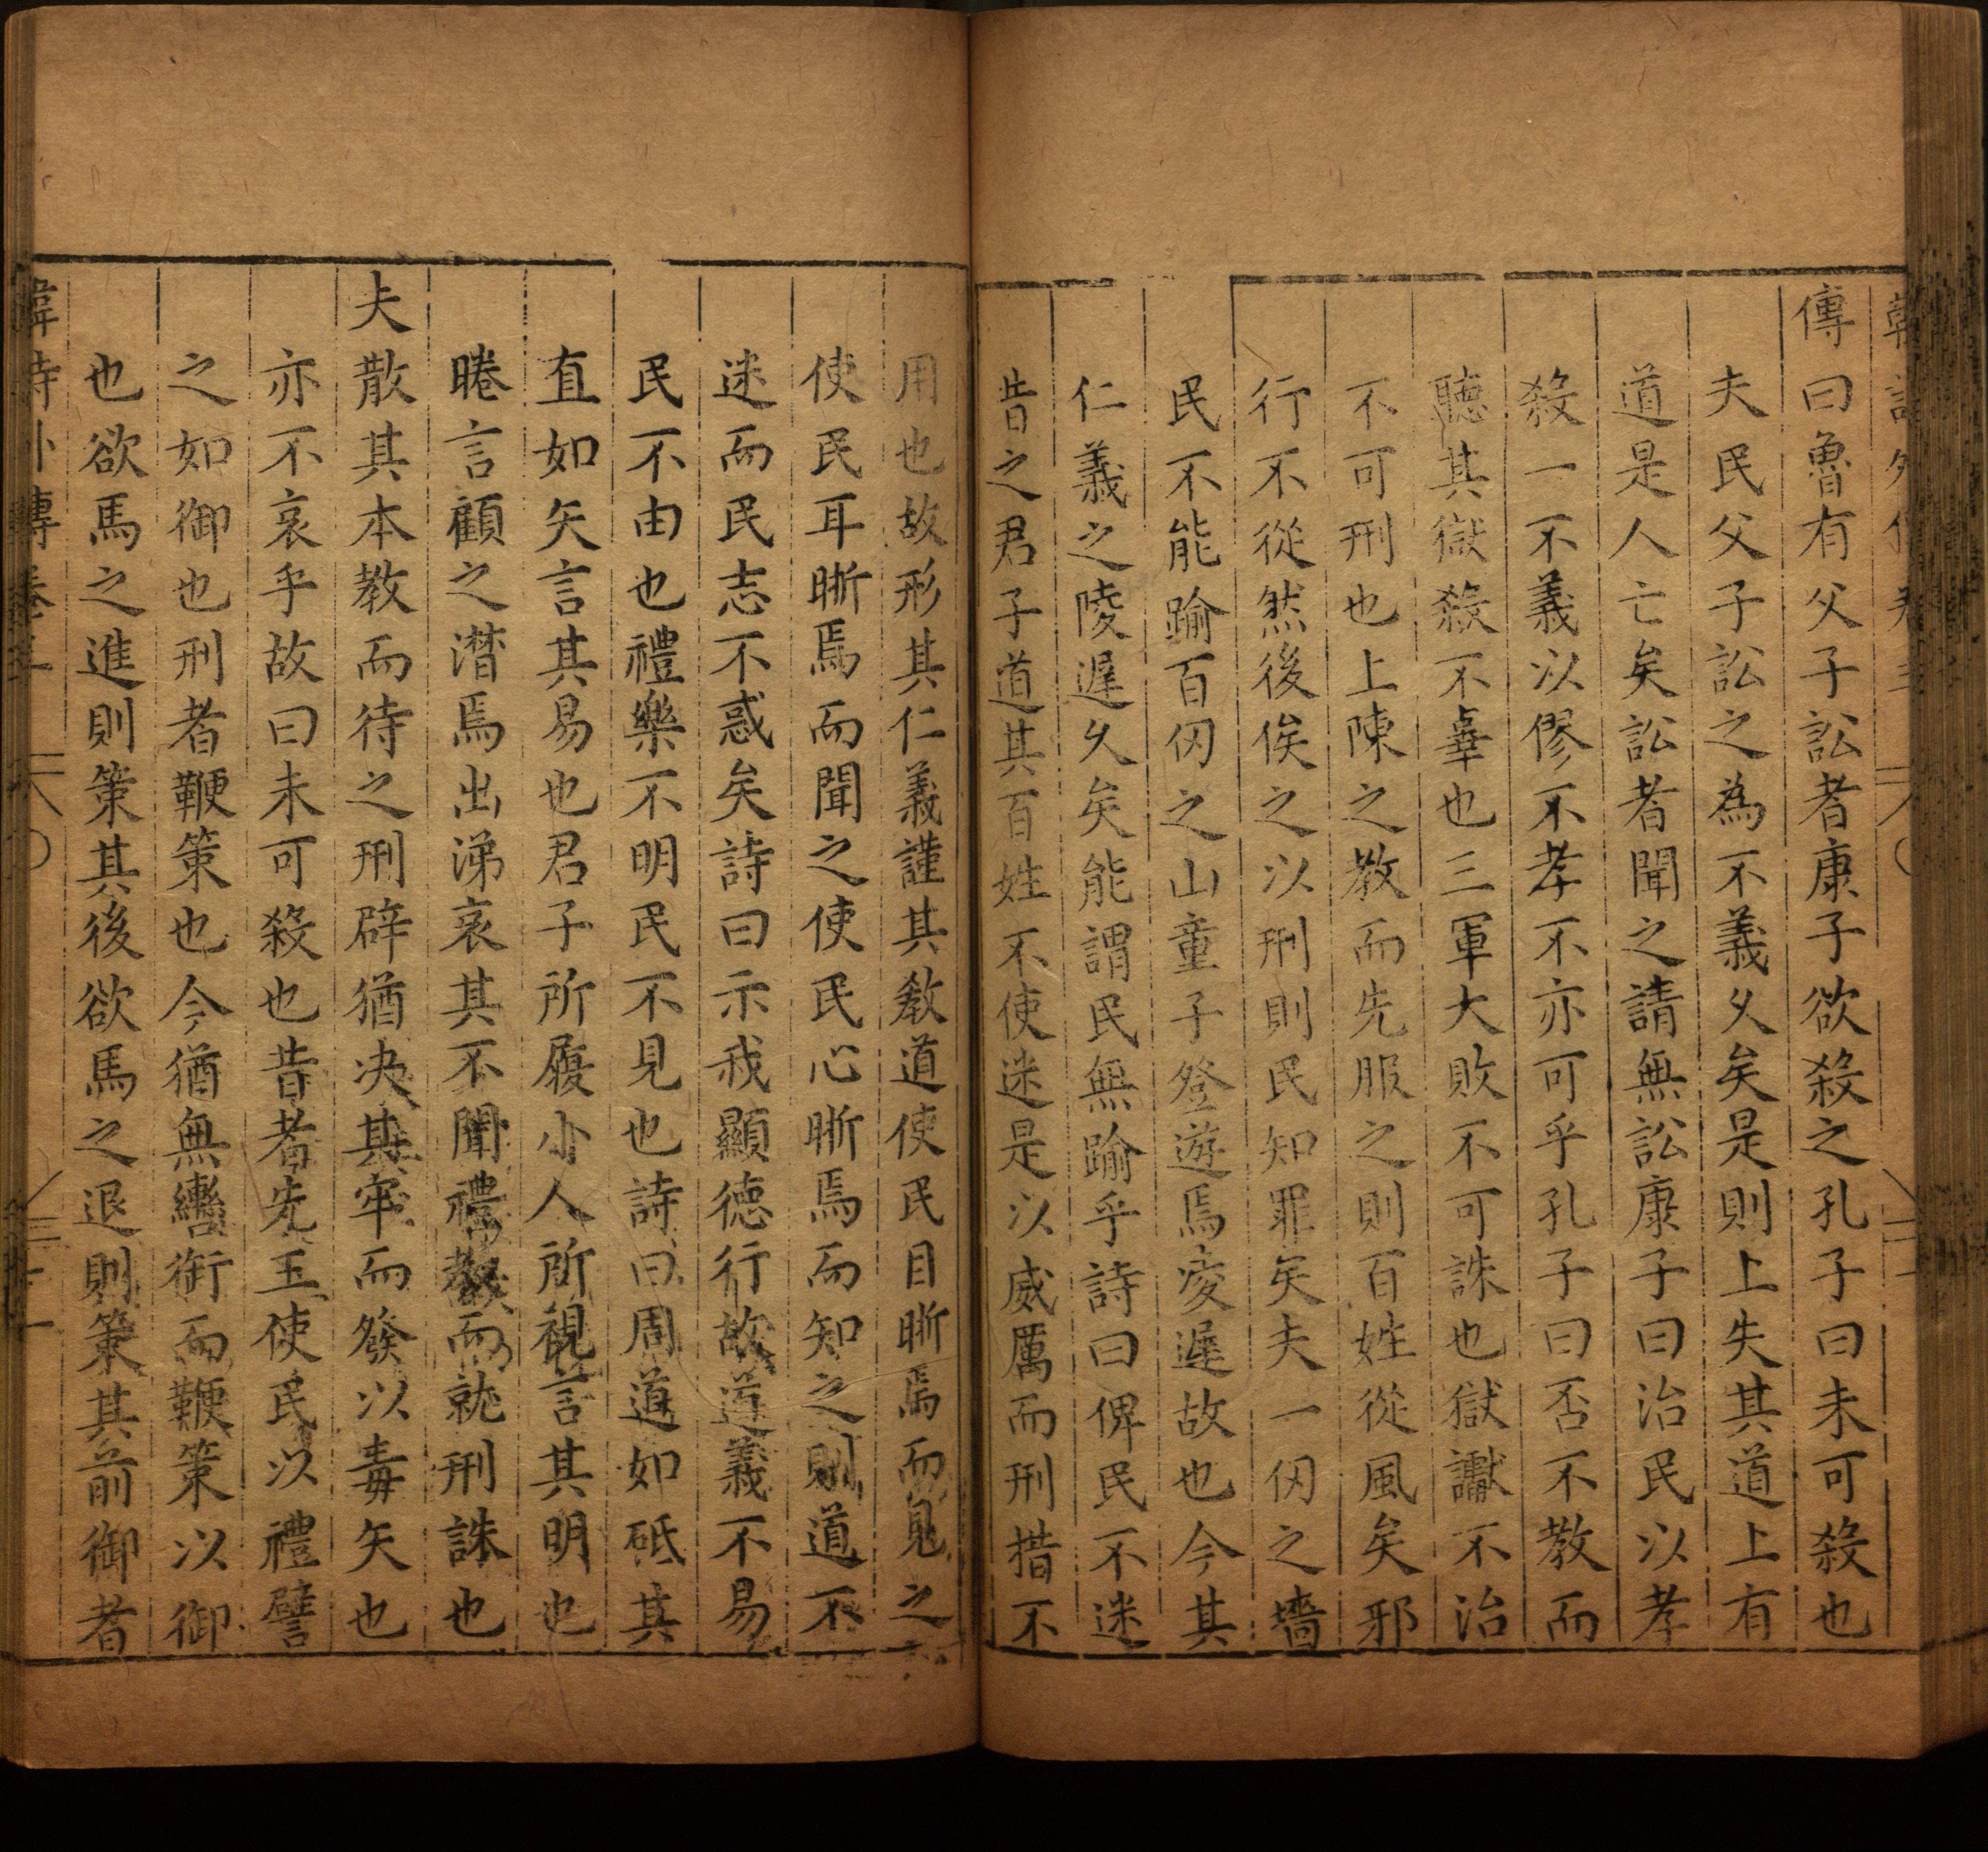 傳曰魯有父子訟者康子欲殺之孔子曰未可殺也
夫民父子訟之為不義久矣是則上失其道上有
道是人亡矣訟者聞之請無訟康子曰治民以孝
殺一不義以僇不孝不亦可乎孔子曰否不教而
聽其獄殺不辜也三軍大敗不可誅也獄讞不治
不可刑也上陳之教而先服之則百姓從風矣邪
行不從然後俟之以刑則民知罪矣夫一仞之墻
民不能踰百仞之山童子登遊焉凌遲故也今其
仁義之陵遲久矣能謂民無踰乎詩曰俾民不迷
昔之君子道其百姓不使迷是以威厲而刑措不
用也故形其仁義謹其教道使民目晣焉而見之
使民耳晣焉而聞之使民心晣焉而知之則道不
迷而民志不惑矣詩曰示我顯德行故道義不易
民不由也禮樂不明民不見也詩曰周道如砥其
直如矢言其易也君子所履小人所視言其明也
睠言顧之潸焉出涕哀其不聞禮教而就刑誅也
夫散其本教而待之刑辟猶决其牢而發以毒矢也
亦不哀乎故曰未可殺也昔者先王使民以禮譬
之如御也刑者鞭策也今猶無轡銜而鞭策以御
也欲馬之進則策其後欲馬之退則策其前御者